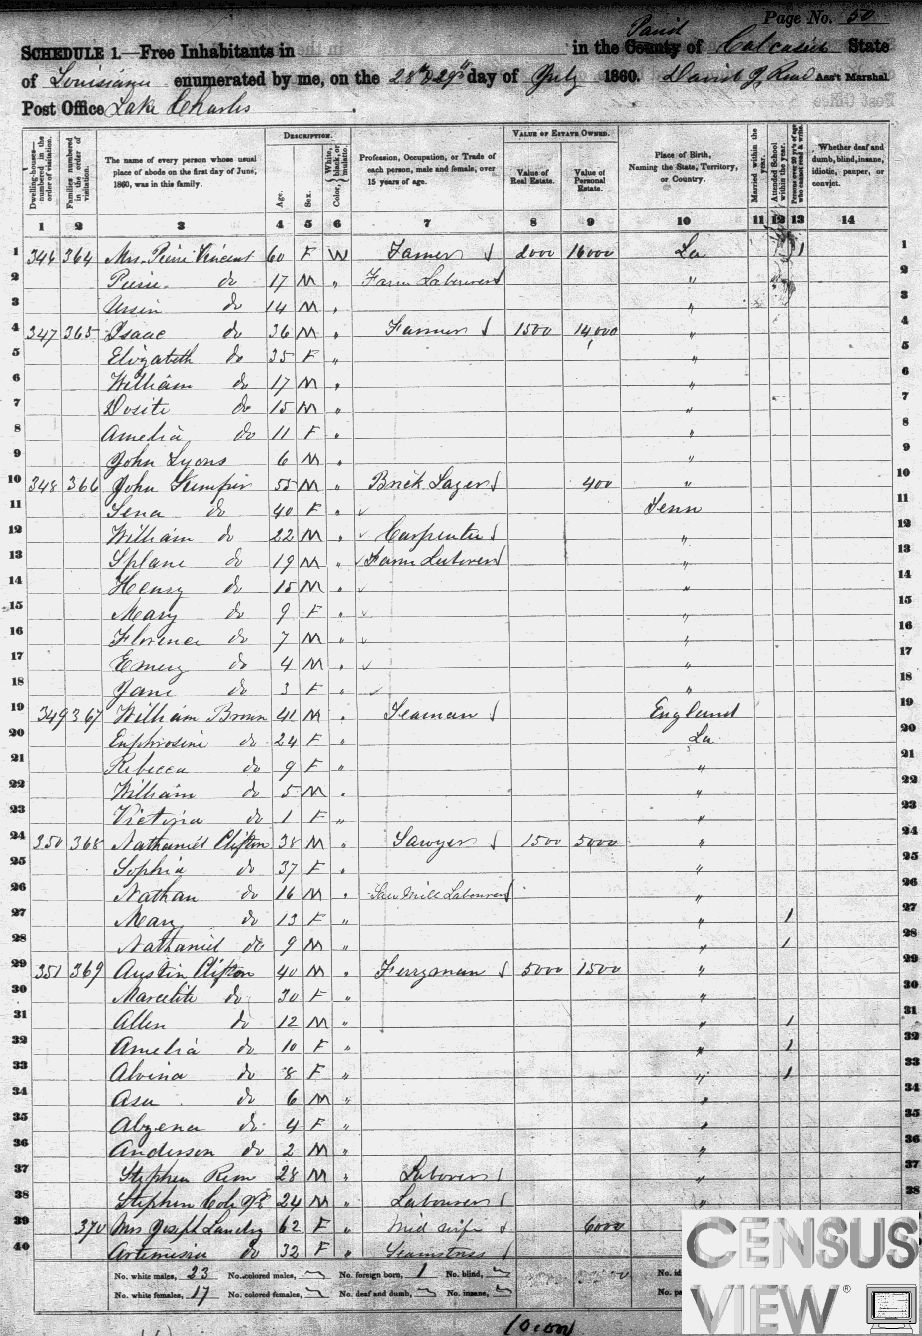 Page No. 50
SCHEDULE 1.—Free Inhabitants in in the County Parish of Calcasieu State
of Louisiana enumerated by me, on the 28th & 29th day of July 1860. David J. Ass't Marshal
Post Office Lake Charles .
Dwelling-houses—numbered in the order of visitation. Families numbered in the order of visitation. The name of every person whose usual place of abode on the first day of June, 1860, was in this family. DESCRIPTION. Age. Sex. Color, White, black, or mulatto. Profession, Occupation, or Trade of each person, male and female, over 15 years of age. VALUE OF ESTATE OWNED. Value of Real Estate. Value of Personal Estate. Place of Birth, Naming the State, Territory, or Country. Married within the year. Attended School within the year. Persons over 20 y'rs of age who cannot read & write. Whether deaf and dumb, blind, insane, idiotic, pauper, or convict.
1 2 3 4 5 6 7 8 9 10 11 12 13 14
1 346 364 Mrs. Pierre Vincent 60 F W Farmer 2000 16000 La 1 1
2 Pierre do 17 M " Farm Labourer " 2
3 Ursin do 14 M " " 3
4 347 365 Isaac do 36 M " Farmer 1500 14,000 " 4
5 Elizabeth do 35 F " " 5
6 William do 17 M " " 6
7 Dosite do 15 M " " 7
8 Amelia do 11 F " " 8
9 John Lyons 6 M " " 9
10 348 366 John 55 M " Brick Layer 400 " 10
11 Lena do 40 F " Tenn 11
12 William do 22 M " Carpenter " 12
13 Splane do 19 M " Farm Labourer " 13
14 Henry do 15 M " " 14
15 Mary do 9 F " " 15
16 Florence do 7 M " " 16
17 Emery do 4 M " " 17
18 Jane do 3 F " " 18
19 349 367 William Brown 41 M " Seaman England 19
20 Euphrosine do 24 F " La 20
21 Rebecca do 9 F " " 21
22 William do 5 M " " 22
23 Victoria do 1 F " " 23
24 350 368 Nathaniel Clifton 38 M " Sawyer 1500 5000 " 24
25 Sophia do 37 F " " 25
26 Nathan do 16 M " Saw Mill Labourer " 26
27 Mary do 13 F " " 1 27
28 Nathaniel do 9 M " " 1 28
29 351 369 Austin Clifton 40 M " Ferryman 5000 1500 " 29
30 Marcelite do 30 F " " 30
31 Allen do 12 M " " 1 31
32 Amelia do 10 F " " 1 32
33 Alvina do 8 F " " 1 33
34 Asa do 6 M " " 34
35 Abzena do 4 F " " 35
36 Anderson do 2 M " " 36
37 Stephen 28 M " Laborer " 37
38 Stephen 24 M " Labourer " 38
39 370 Mrs Joseph Landry 62 F " Mid wife 6000 39
40 Artemesia do 32 F " Seamstress
No. white males, 23 No. colored males, No. foreign born, 1 No. blind, No. id
No. white females, 17 No. colored females, No. deaf and dumb, No. insane, No. pa
CENSUS
VIEW ®